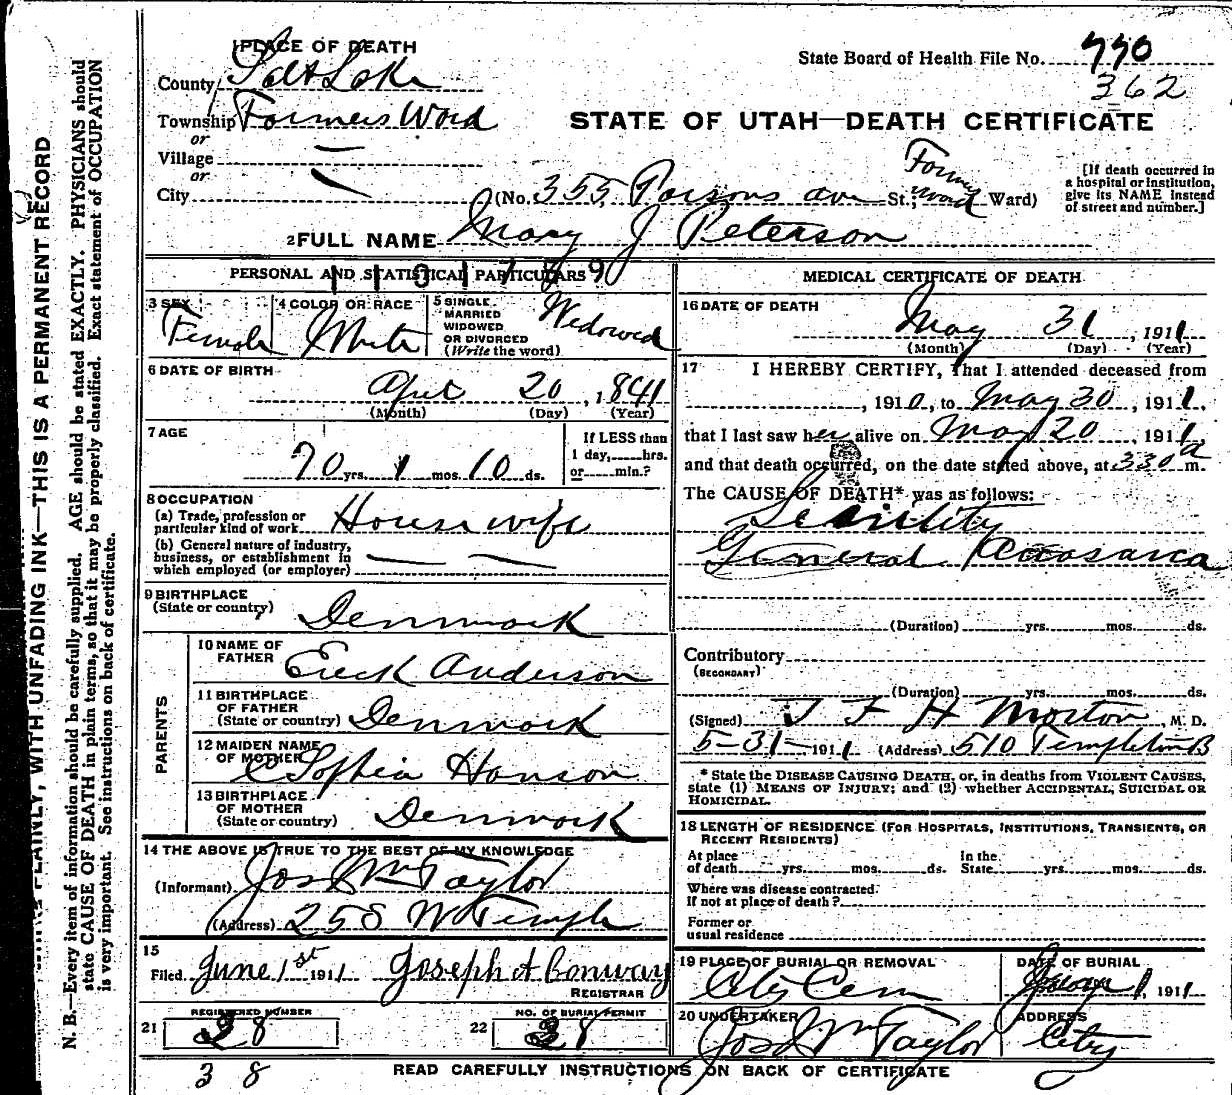 WRITE PLAINLY, WITH UNFADING INK—THIS IS A PERMANENT RECORD
N. B.—Every item of information should be carefully supplied. AGE should be stated EXACTLY. PHYSICIANS should
state CAUSE OF DEATH in plain terms, so that it may be properly classified. Exact statement of OCCUPATION
is very important. See instructions on back of certificate.
1 PLACE OF DEATH
County Salt Lake
Township Farmers Ward
or
Village
or
City
State Board of Health File No. 770
362
STATE OF UTAH—DEATH CERTIFICATE
(No. 355 Parsons ave St.; Farmers Ward Ward)
[If death occurred in
a hospital or institution,
give its NAME instead
of street and number.]
2 FULL NAME Mary J Peterson
PERSONAL AND STATISTICAL PARTICULARS
3 SEX
Female
4 COLOR OR RACE
White
5 SINGLE
MARRIED
WIDOWED
OR DIVORCED
(Write the word)
Widowed
6 DATE OF BIRTH
April 20, 1841
(Month) (Day) (Year)
7 AGE
70 yrs. 1 mos. 10 ds.
If LESS than
1 day, hrs.
or min.?
8 OCCUPATION
(a) Trade, profession or
particular kind of work House wife
(b) General nature of industry,
business, or establishment in
which employed (or employer)
9 BIRTHPLACE
(State or country) Denmark
PARENTS
10 NAME OF
FATHER Erick Anderson
11 BIRTHPLACE
OF FATHER
(State or country) Denmark
12 MAIDEN NAME
OF MOTHER Sophia Hanson
13 BIRTHPLACE
OF MOTHER
(State or country) Denmark
14 THE ABOVE IS TRUE TO THE BEST OF MY KNOWLEDGE
(Informant) Jos Wm Taylor
(Address) 258 W Temple
15
Filed June 1st 1911 Joseph A Conway
REGISTRAR
REGISTERED NUMBER
21 38
NO. OF BURIAL PERMIT
22 38
38
MEDICAL CERTIFICATE OF DEATH
16 DATE OF DEATH
May 31, 1911
(Month) (Day) (Year)
17 I HEREBY CERTIFY, That I attended deceased from
, 1910, to May 30, 1911,
that I last saw her alive on May 20, 1911,
and that death occurred, on the date stated above, at 330 a m.
The CAUSE OF DEATH* was as follows:
Senility
General Anasarca
(Duration) yrs. mos. ds.
Contributory
(SECONDARY)
(Duration) yrs. mos. ds.
(Signed) T F H Morton, M. D.
5-31-1911 (Address) 510 Templeton B
* State the DISEASE CAUSING DEATH, or, in deaths from VIOLENT CAUSES,
state (1) MEANS OF INJURY; and (2) whether ACCIDENTAL, SUICIDAL OR
HOMICIDAL.
18 LENGTH OF RESIDENCE (FOR HOSPITALS, INSTITUTIONS, TRANSIENTS, OR
RECENT RESIDENTS)
At place
of death yrs. mos. ds.
In the
State yrs. mos. ds.
Where was disease contracted
If not at place of death?
Former or
usual residence
19 PLACE OF BURIAL OR REMOVAL
City Cem
DATE OF BURIAL
1, 1911
20 UNDERTAKER
Jos Wm Taylor
ADDRESS
City
READ CAREFULLY INSTRUCTIONS ON BACK OF CERTIFICATE